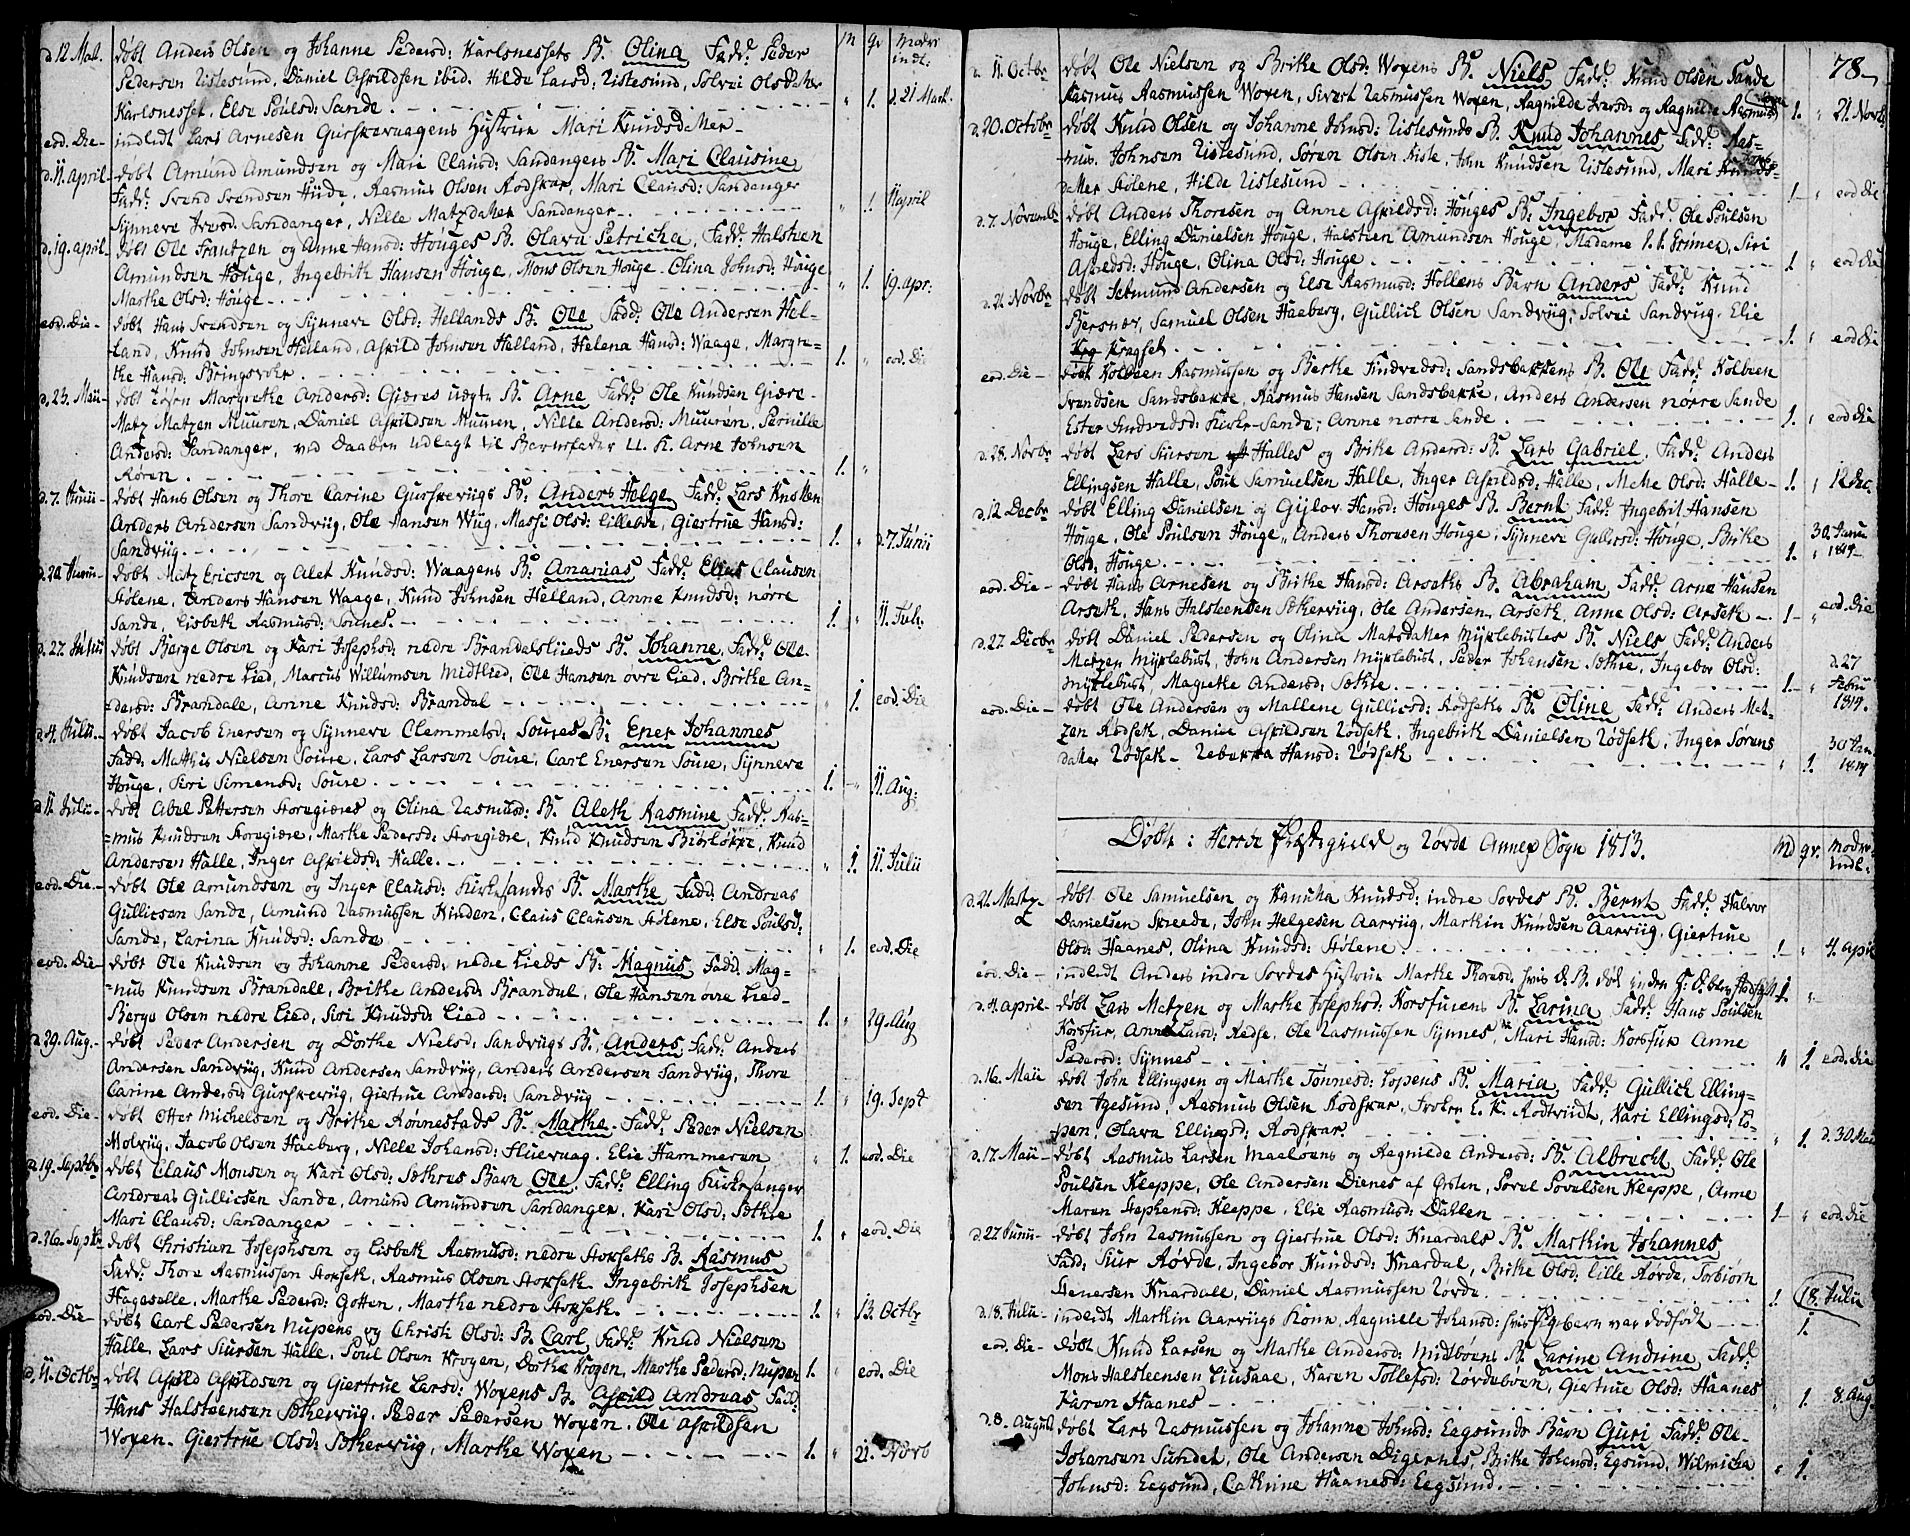 M qv Modr: indl:
d.12 Mart. døbt Anders Olsen og Johanne Pedersd: Karlsnessets B. Olina Fadd: Peder
Pedersen Uistesund, Daniel Aspildsen ibid. Hilde Larsd: Uistesund, Solvei Olsdatter
Karlsnesset, Else Poulsd: Sande. 1. d.21 Mart.
eod. Die indledt Lars Arnesen Gurskevaagens Hustrue Mari Knudsdatter
d.11. april døbt Amund Amundsen og Mari Clausd: Sandangers B. Mari Clausine
Fadd: Svend Svendsen Hiide, Rasmus Olsen Rodskar, Mari Clausd: Sandanger
Synneve Iversd: Sandanger, Nille Matzdatter Sandanger. 1. 11 april
d.19. april døbt Ole Frantzen og Anne Hansd: Houges B. Olava Petricka, Fadd: Halsteen
Amundsen Houge, Ingebrik Hansen Houge, Mons Olsen Houge. Olina Johnsd: Houge
Marthe Olsd: Houge. 1. 19. apr:
eod. Die døbt Hans Svendsen og Synneve Olsd: Hellands B. Ole Fadd: Ole Andersen Hel-
land, Knud Johnsen Helland, Aspild Johnsen Helland, Helena Hansd: Waage, Margre-
the Hansd: Bringsvohr. 1. eod. Die
d.23. Maii døbt Løsen Margrethe Andersd: Giæres uægte B. Arne Fadd: Ole Knudsen Giære
Matz Matzen Muuren, Daniel Aspildsen Muuren, Nille Andersd: Muuren, Pernille
Andersd: Sandanger, ved Daaben udlagt til Barnefader U. K. Arne Johnsen
Røren. 1.
d.7. Junii døbt Hans Olsen og Thore Carine Gurskeviigs B: Anders Helge Fadd: Lars Knotten
Anders Andersen Sandviig, Ole Hansen Wiig, Massi Olsd: Lillebøe, Giertrue Hansd:
Sandviig. 1. d.7. Junii
d.20 Junii døbt Matz Ericsen og Alet Knudsd: Waagens B: Ananias Fadd: Elias Clausen
Stølene, Anders Hansen Waage, Knud Johnsen Helland, Anne Knudsd: norre
Sande, Lisbeth Rasmusd: Sounes. 1. 11. Juli:
d.27. Junii døbt Berge Olsen og Kari Josephsd: nedre Brandalsliids B: Johanne, Fadd: Ole
Knudsen nedre Lied, Marcus Willumsen Midtlied, Ole Hansen øvre Lied, Brithe An-
dersd: Brandale, Anne Knudsd: Brandal 1. eod. Die
d.4. Julii døbt Jacob Enersen og Synneve Clemmetsd: Sounes B: Ener Johannes
Fadd: Matthis Nielsen Soure, Lars Larsen Soure, Carl Enersen Soure, Synneve
Houge, Siri Simensd: Soure 1. 11. Aug:
d.11 Julii døbt Abel Pettersen Storegiæres og Olina Rasmusd: B: Aleth Rasmine Fadd: Ras-
mus Knudsen Storegiære, Marthe Pedersd: Storegiære, Knud Knudsen Biørløkke, Knud
Andersen Halle, Inger Aspildsd: Halle. 1. 11 Julii
eod. Die døbt Ole Amundsen og Inger Clausd: Kirkesandes B. Marthe Fadd: Andreas
Gullicsen Sande, Amund Rasmussen Hinden, Claus Clausen Stølene, Else Poulsd:
Sande, Larina Knudsd: Sande 1. eod. Die
eod. Die døbt Ole Knudsen og Johanne Pedersd: nedre Lieds B: Magnus Fadd. Mag-
nus Knudsen Brandale, Brithe Andersd: Brandal, Ole Hansen øvre Lied
Berge Olsen nedre Lied, Siri Knudsd: Lied 1. 29. Aug
d.29. Aug. døbt Peder Andersen og Dorthe Nielsd: Sandvigs B. Anders Fadd: Anders
Andersen Sandviig, Knud Andersen Sandviig, Anders Andersen Sandviig, Thora
Carine Andersd: Gurskeviig, Giertrue Andersd: Sandviig 1. 19. Sept
eod. Die døbt Otter Michelsen og Brithe Rønnestads B. Marthe. Fadd: Peder Nielsen
Molviig, Jacob Olsen Haaberg, Nille Johansd: Huevaag. Elie Hammeren 1. eod. Die
d.19. Septbr døbt Claus Monsen og Kari Olsd: Sæthres Barn Ole. Fadd: Elling Kirkesanger
Andreas Gullicsen Sande, Amund Amundsen Sandanger, Kari Olsd: Sæthre
Mari Clausd: Sandanger 1. eod. Die
d.26. Septbr døbt Christian Josephsen og Lisbeth Rasmusd: nedre Storseths B. Rasmus
Fadd: Thore Rasmussen Storseth, Rasmus Olsen Storseth Ingebrik Josephsen
Hageselle, Marthe Pedersd: Gotten, Marthe nedre Storseth. 1. 13. Octbr
eod. Die døbt Carl Pedersen Nupens og Christi Olsd: B. Carl, Fadd: Knud Nielsen
Halle, Lars Siursen Halle, Poul Olsen Krogen, Dorthe Krogen, Marthe Pedersd: Nupen 1. eod. Die
d.11. Octbr døbt Aspild Aspildsen og Giertrue Larsd: Woxens B. Aspild Andreas Fadd:
Hans Halsteensen Sætherviig, Peder Pedersen Woxen, Ole Aspildsen
Woxen. Giertrue Olsd: Sætherviig, Marthe Woxen 1. 21. Novb
78
d. 11. Octbr døbt Ole Nielsen og Brithe Olsd: Woxens B. Niels Fadd: Knud Olsen Sande
Rasmus Rasmussen Woxen, Sivert Rasmussen Woxen, Aagnilde Iversd: og Aagnilde Rasmusd 1. 21. Novb
d.20. Octobr døbt Knud Olsen og Johanne Johnsd: Uistesunds B. Knud Johannes Fadd: Ras-
mus Johnsen Uistesund, Søren Olsen Aiste, John Knudsen Uistesund, Mari Knuds-
datter Stølene, Hilde Uistesund 1. eod Die
d.7. Novembr døbt Anders Thoresen og Anne Aspildsd: Houges B: Ingebor Fadd: Ole Poulsen
Houge, Elling Danielsen Houge, Halsteen Amundsen Houge, Madame Grimer, Siri
Houge, Olina Olsd: Houge 1. eod Die
d.21 Novbr døbt Sekmund Andersen og Else Rasmusd: Hollens Barn Anders Fadd: Knud
Bersnær, Samuel Olsen Haaberg, Gullich Olsen Sandviig, Solvei Sandviig. Elie
Kragset. 1. eod Die
eod. Die døbt Kolbeen Rasmussen og Berthe Findredsd: Sandsbakkens B. Ole Fadd: Kolbeen
Svendsen Sandsbakke, Rasmus Hansen Sandsbakke, Anders Andersen norre Sande
Ester Kirke-Sande, Anne norre Sande. 1. eod Die
d.28. Novbr døbt Lars Siursen Halles og Brithe Andersd: B. Lars Gabriel. Fadd: Anders
Ellingsen Halle, Poul Samuelsen Halle, Inger Aspildsd: Halle, Mette Olsd: Halle 1. 12 Dec.
d.12 Decbr døbt Elling Danielsen og Gijlov Hansd: Houges B. Bernt Fadd: Ingebrit Hansen
Houge, Ole Poulsen Houge, Anders Thoresen Houge, Synneve Gullicsd: Houge, Brithe
Olsd: Houge. 1. 30. Janu 1814
eod. Die døbt Hans Arnesen og Brithe Hansd: Arseths B. Abraham Fadd: Arne Hansen
Arseth, Hans Halsteensen Sætherviig, Ole Andersen Arseth, Anne Olsd: Arseth 1. eod. Die
d.27. Decbr døbt Daniel Pedersen og Olina Matsdatter Myklebustes B. Niels Fadd: Anders
Matzen Myklebust, John Andersen Myklebust, Peder Johansen Sæthre, Ingebor Olsd:
Myklebust, Magrethe Andersd: Sæthre. 1. d.27 Febru 1814.
eod. Die døbt Ole Andersen og Mallene Gullicsd: Rødseths B: Oline Fadd: Anders Mat-
zen Rødseth, Daniel Aspildsen Rødseth, Ingebrik Danielsen Rødseth, Inger Sørens
datter Rødseth, Rebekka Hansd: Rødseth 1. 30 Jan 1814
Døbt i Herrøe Præstegield og Røvde Annex Sogn 1813. M qv. Modr: Indl:
d.21. Marty døbt Ole Samuelsen og Knudsd: indre Sordes B. Bernt Fadd: Halvor
Danielsen Skreede, John Helgesen Aarviig, Marthin Knudsen Aarviig, Giertrue
Olsd: Haanes, Olina Knudsd: Stølene 1. 4. april
eod. Die indledt Anders indre Sordes Hustrue Marthe Thoresd: hvis d. B. død inden 1.
d.4. april døbt Lars Matzen og Marthe Josephsd: Korsfurens B. Larina Fadd: Hans Poulsen
Korsfur, Anne Larsd: Aedse, Ole Rasmussen Synnes, Mari Hansd: Korsfur Anne
Pedersd: Synnes 1. eod. Die
d.16. Maii døbt John Ellingsen og Marthe Tønnesd: Lopens B. Maria Fadd: Gullich Elling-
sen Igesund, Rasmus Olsen Rodskar, Froken E. K. Rodtvidt, Kari Ellingsd: Lo-
pen, Olava Ellingsd: Rodskar. 1. d.30 Maii
d.17. Maii døbt Rasmus Larsen Maaloens og Aagnilde Andersd: B: Albrecht Fadd: Ole
Poulsen Kleppe, Ole Andersen Dienes af Ørsten, Povel Povelsen Kleppe, Anne
Maren Stephensd: Kleppe, Elie Rasmusd: Dahlen 1. eod. Die
d.27 Junii døbt John Rasmussen og Giertrue Olsd: Knardals B. Marthin Johannes
Fadd: Siur Røvde, Ingebor Knudsd: Knardal, Brithe Olsd: Lille Røvde, Torbiørn
Stenersen Knardale, Daniel Rasmussen Røvde. 1. 18. Julii
d.18. Julii indledt Marthin Aarviigs Kone, Aagnille Johansd: hvis Pigebarn var dødfødt 1.
eod. Die døbt Knud Larsen og Marthe Andersd: Midtboens B. Larine Andrine, Fadd:
Mons Halsteensen Liusaae, Karen Tollefsd: Røvdeboen, Giertrue Olsd: Haanes
Karen Haanes 1. 8. Aug.
d.8. August døbt Lars Rasmussen og Johanne Johnsd: Eegsunds Barn Guri Fadd: Ole
Johansen Sundet, Ole Andersen Digernes, Brithe Johansd: Egsund, Wilmicha
Johnsd: Eegsund, Cathrine Haanesd: Eegsund. 1.